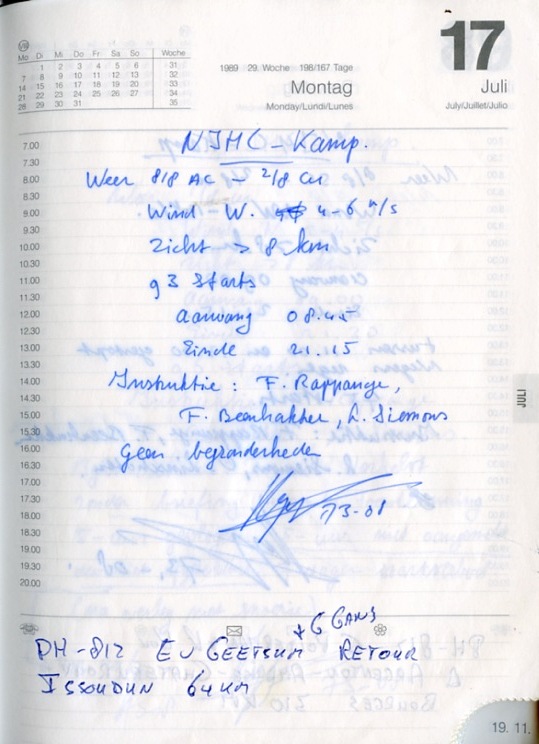 17
1989 29. Woche 198/167 Tage
Montag
Juli
Monday/Lundi/Lunes
July/Juillet/Julio
Mo Di Mi Do Fr Sa So Woche
1 2 3 4 5 6 31
7 8 9 10 11 12 13 32
14 15 16 17 18 19 20 33
21 22 23 24 25 26 27 34
28 29 30 31 35
7.00 NJMC-Kamp.
7.30
8.00 Weer 8/8 AC - 2/8 Cu
8.30
9.00 Wind - W. 4-6 m/s
9.30
10.00 Zicht > 8 km
10.30
11.00 93 Starts
11.30
12.00 Aanvang 08.45
12.30
13.00 Einde 21.15
13.30
14.00 Instruktie : F. Rappange,
14.30
15.00 F. Beenhakker, L. Siemons
15.30
16.00 Geen bezonderheden
16.30
17.00
17.30
18.00 73-01
18.30
19.00
19.30
20.00
JULI
+ G GANS
PH-812 EV GEETSUM RETOUR
ISSOUDUN 64 KM
19. 11.